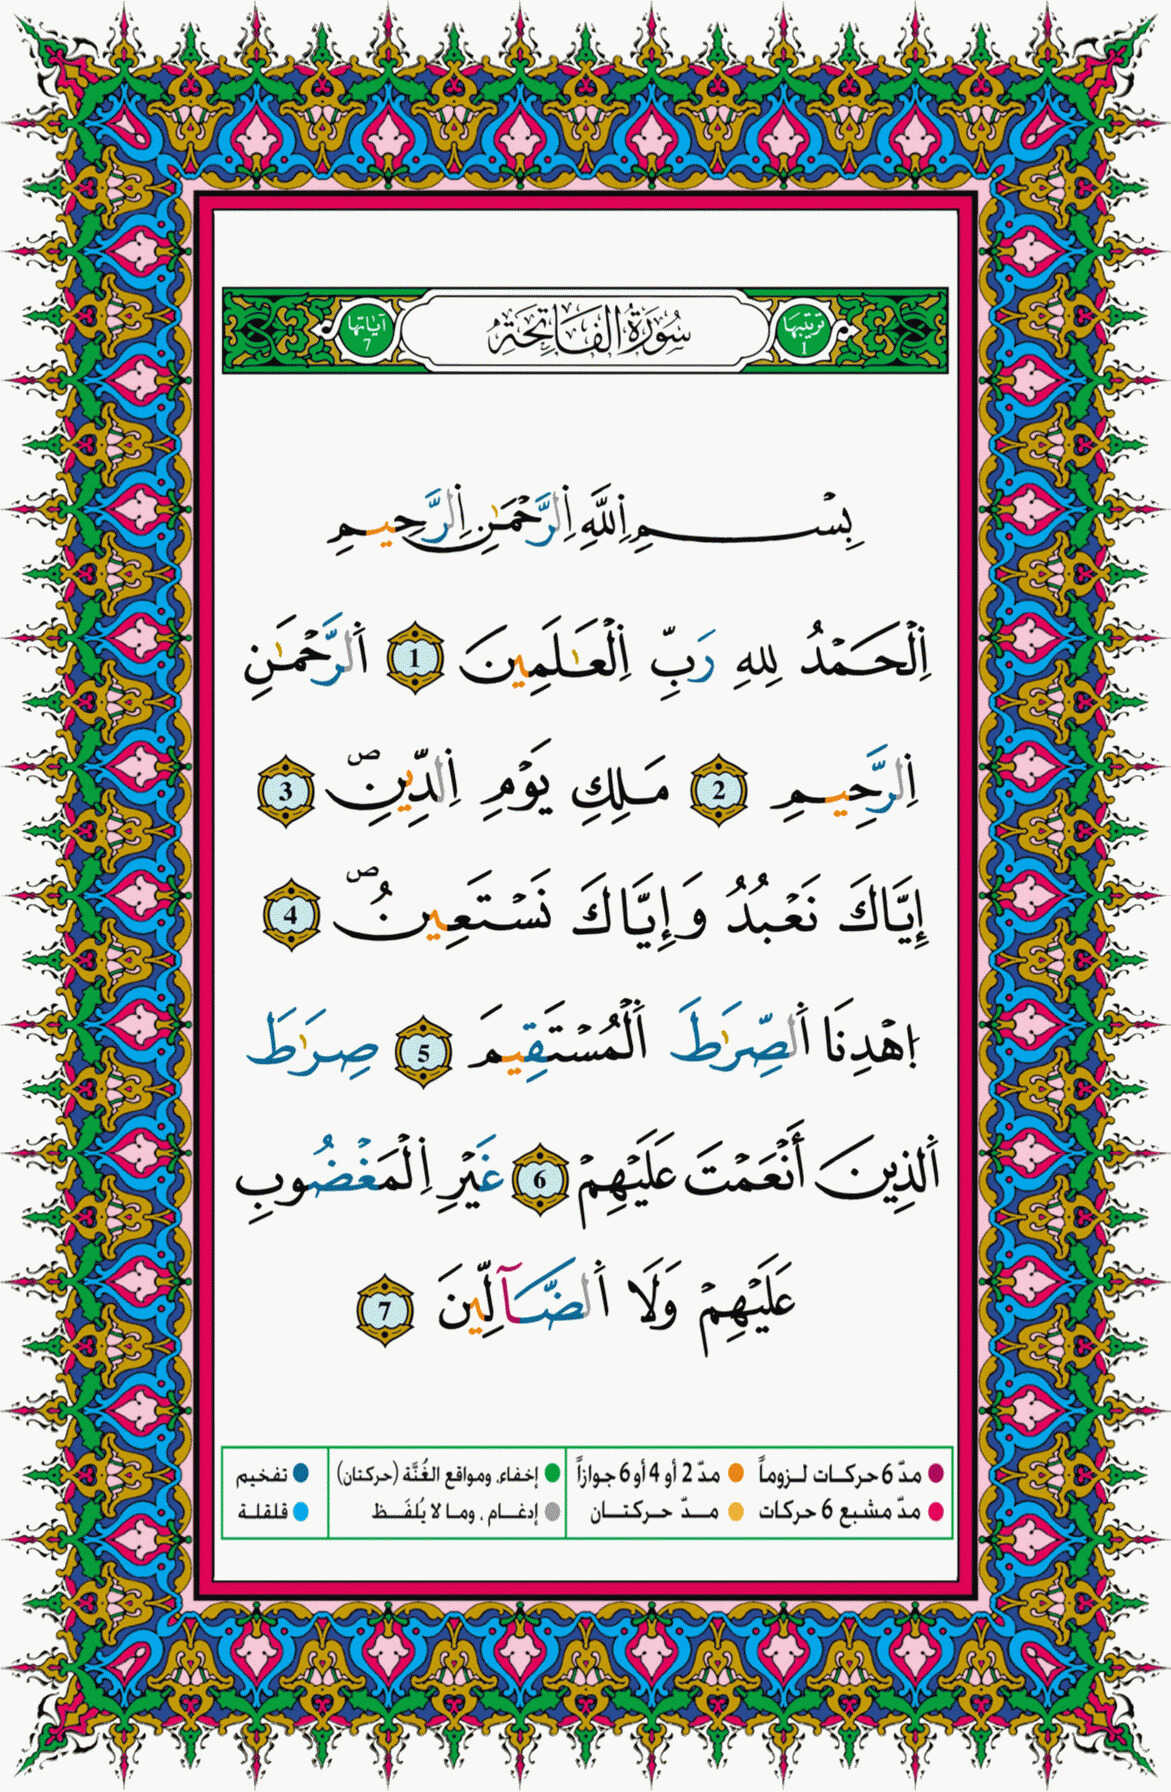 ترتيبها 1 سُورَةُ الفَاتِحَةِ آياتها 7
بِسْمِ اِ۬للَّهِ اِ۬لرَّحْمَٰنِ اِ۬لرَّحِيمِ
اِ۬لْحَمْدُ لِلهِ رَبِّ اِ۬لْعَٰلَمِينَ 1 اَ۬لرَّحْمَٰنِ
اِ۬لرَّحِيمِ 2 مَلِكِ يَوْمِ اِ۬لدِّينِۖ 3
إِيَّاكَ نَعْبُدُ وَإِيَّاكَ نَسْتَعِينُۖ 4
اِ۪هْدِنَا اَ۬لصِّرَٰطَ اَ۬لْمُسْتَقِيمَ 5 صِرَٰطَ
اَ۬لذِينَ أَنْعَمْتَ عَلَيْهِمْ 6 غَيْرِ اِ۬لْمَغْضُوبِ
عَلَيْهِمْ وَلَا اَ۬لضَّآلِّينَ 7
مدّ 6 حركات لزوماً مدّ 2 أو 4 أو 6 جوازاً إخفاء، ومواقع الغُنَّة (حركتان) تفخيم
مدّ مشبع 6 حركات مدّ حركتان إدغام ، وما لا يُلفَظ قلقلة